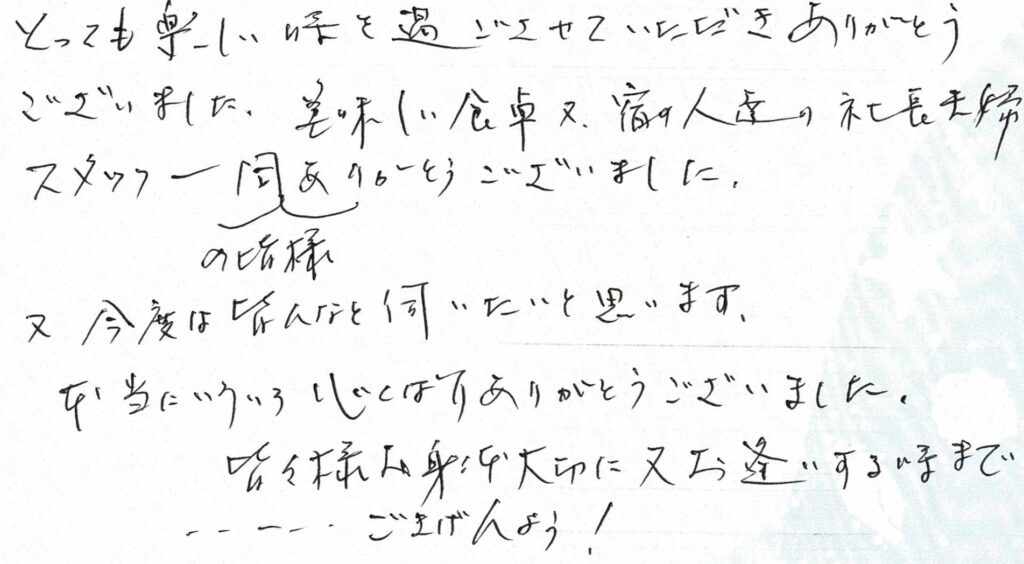 とっても楽しい時を過ごさせていただきありがとう
ございました。美味しい食卓又、宿の人達の社長夫婦
スタッフ一同ありがとうございました。
の皆様
又今度は皆んなと伺いたいと思います。
本当にいろいろ心くばりありがとうございました。
皆々様お身体大切に又お逢いする時まで
------ごきげんよう!